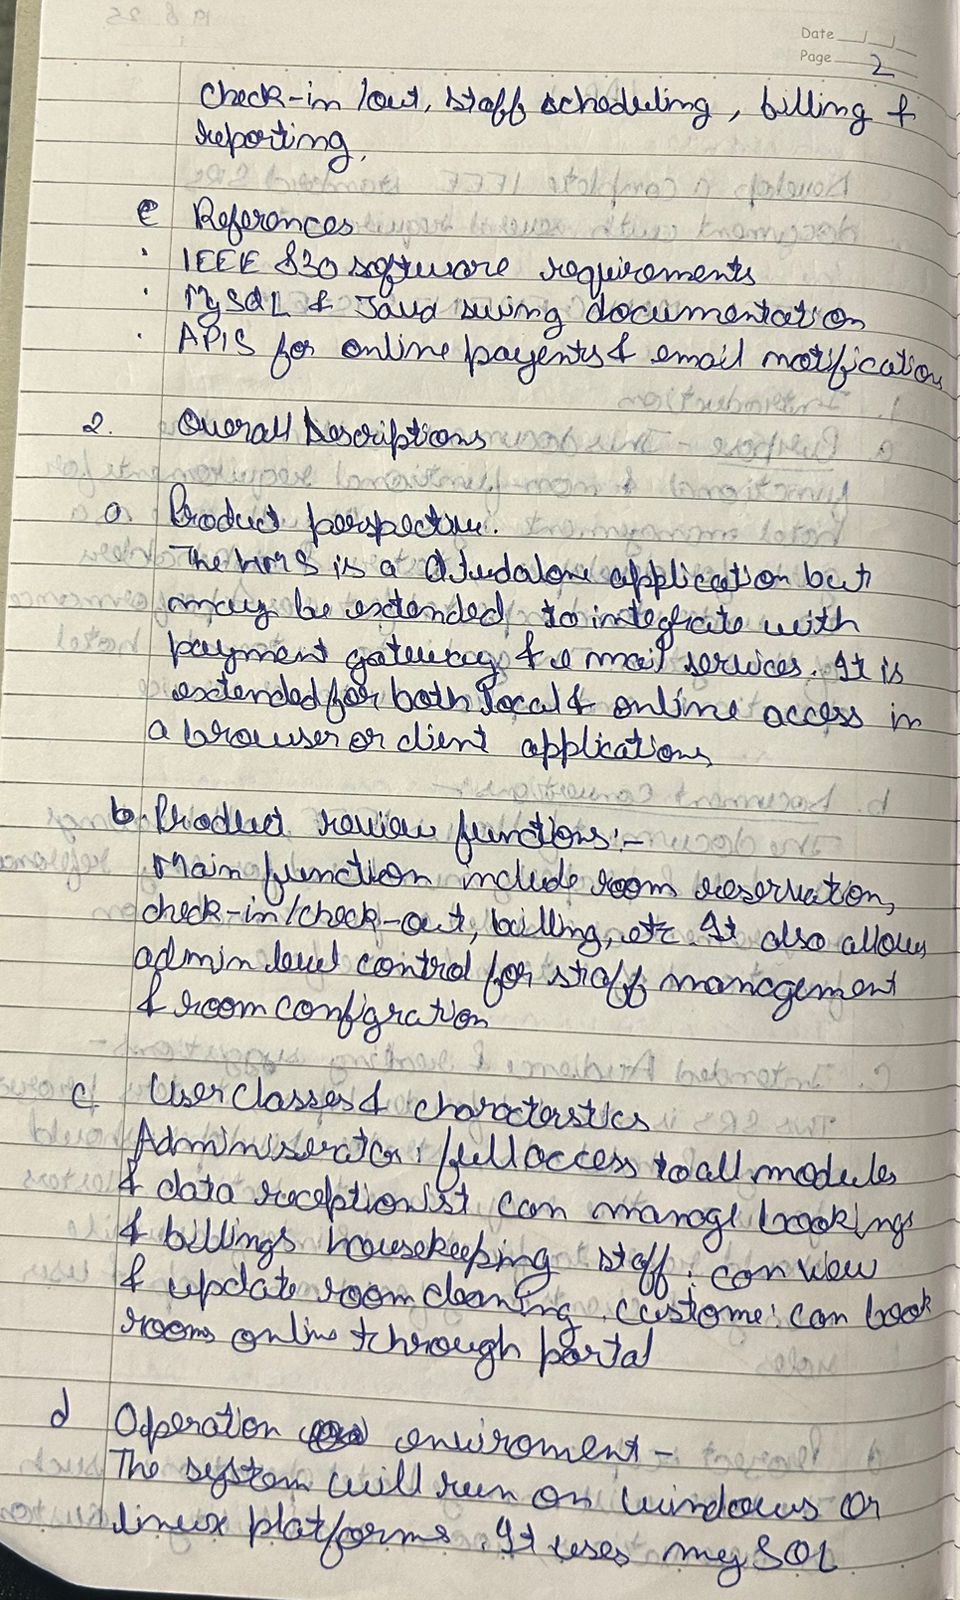 Date
Page 2
check-in /out, staff scheduling, billing &
reporting.
e References
· IEEE 830 software requirements
· MySQL & Java swing documentation
· APIS for online payents & email notification
2. Overall Descriptions
a Product perspective.
The HMS is a standalone application but
may be extended to integrate with
payment gateway & e mail services. It is
extended for both local & online access in
a browser or client applications
b. Product review functions:-
Main function include room reservation,
check-in/check-out, billing, etc. It also allows
admin level control for staff management
& room configration
c User Classes & charactorstics
Administrator: full access to all modules
& data receptionist can manage bookings
& billings housekeeping staff: can view
& update room cleaning. custome: can book
rooms online through portal
d Operation enviroment -
The system will run on windows or
linux platforms. It uses mySQL